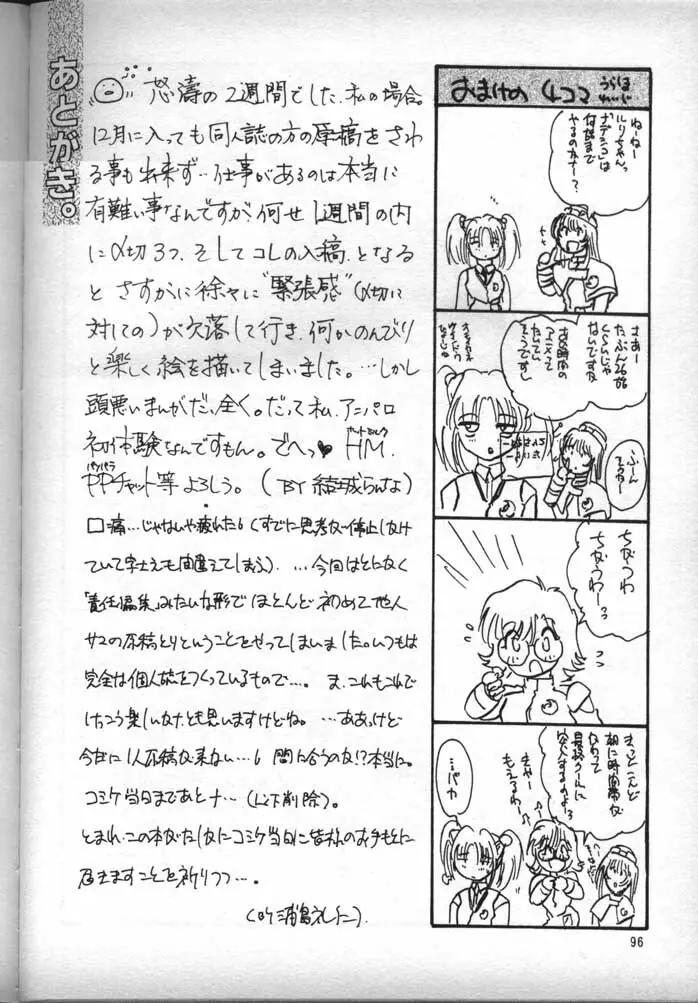 あとがき。
怒濤の2週間でした、私の場合。
12月に入っても同人誌の方の原稿をさわ
る事も出来ず…仕事があるのは本当に
有難い事なんですが、何せ1週間の内
に〆切3つ、そしてコレの入稿、となる
と さすがに徐々に"緊張感"(〆切に
対しての)が欠落して行き、何かのんびり
と楽しく絵を描いてしまいました。…しかし
頭悪いまんがだ、全く。だって私、アニパロ
初体験なんですもん。でへっ♥ HM、
ホットミルク
パソパラ
PPチャット等よろしう。(BY 結城らんな)
口痛…じゃないや疲れた
…今回はとにかく
「責任編集」みたいな形でほとんど初めて他人
サマの原稿とりということをやってしまいました。いつもは
完全な個人誌をつくっているもので…。ま、これもこれで
けっこう楽しいなとも思いますけどね。…ああ、けど
今だに1人原稿が来ない…
間に合うのか!?本当に。
コミケ当日まであと十…(以下削除)。
ともあれ、この本が
コミケ当日に皆様のお手もとに
届きますことを祈りつつ…。
おまけの 4コマ
ねーねー
ルリちゃんっ
ナデシコは
何話まで
やるのかなー?
さあー
たぶん26話
くらいじゃ
ないですか
アニメって
たいてい
そうです
ふーん
ちがうわ
ちがうわーっ
きっとこんど
朝に時間帯が
かわって
きゃー
もえるわー
…バカ
96